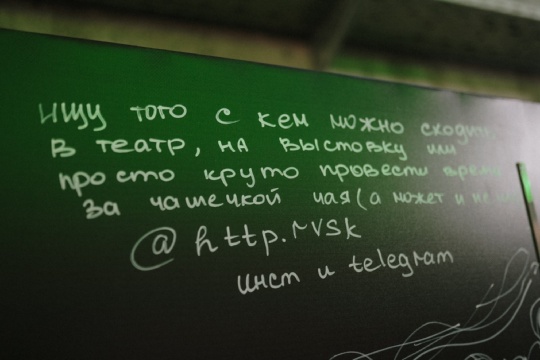 ищу того с кем можно сходить
в театр, на выстовку или
просто круто провести время
за чашечкой чая (а может и не
@http.nvsk
инст и telegram